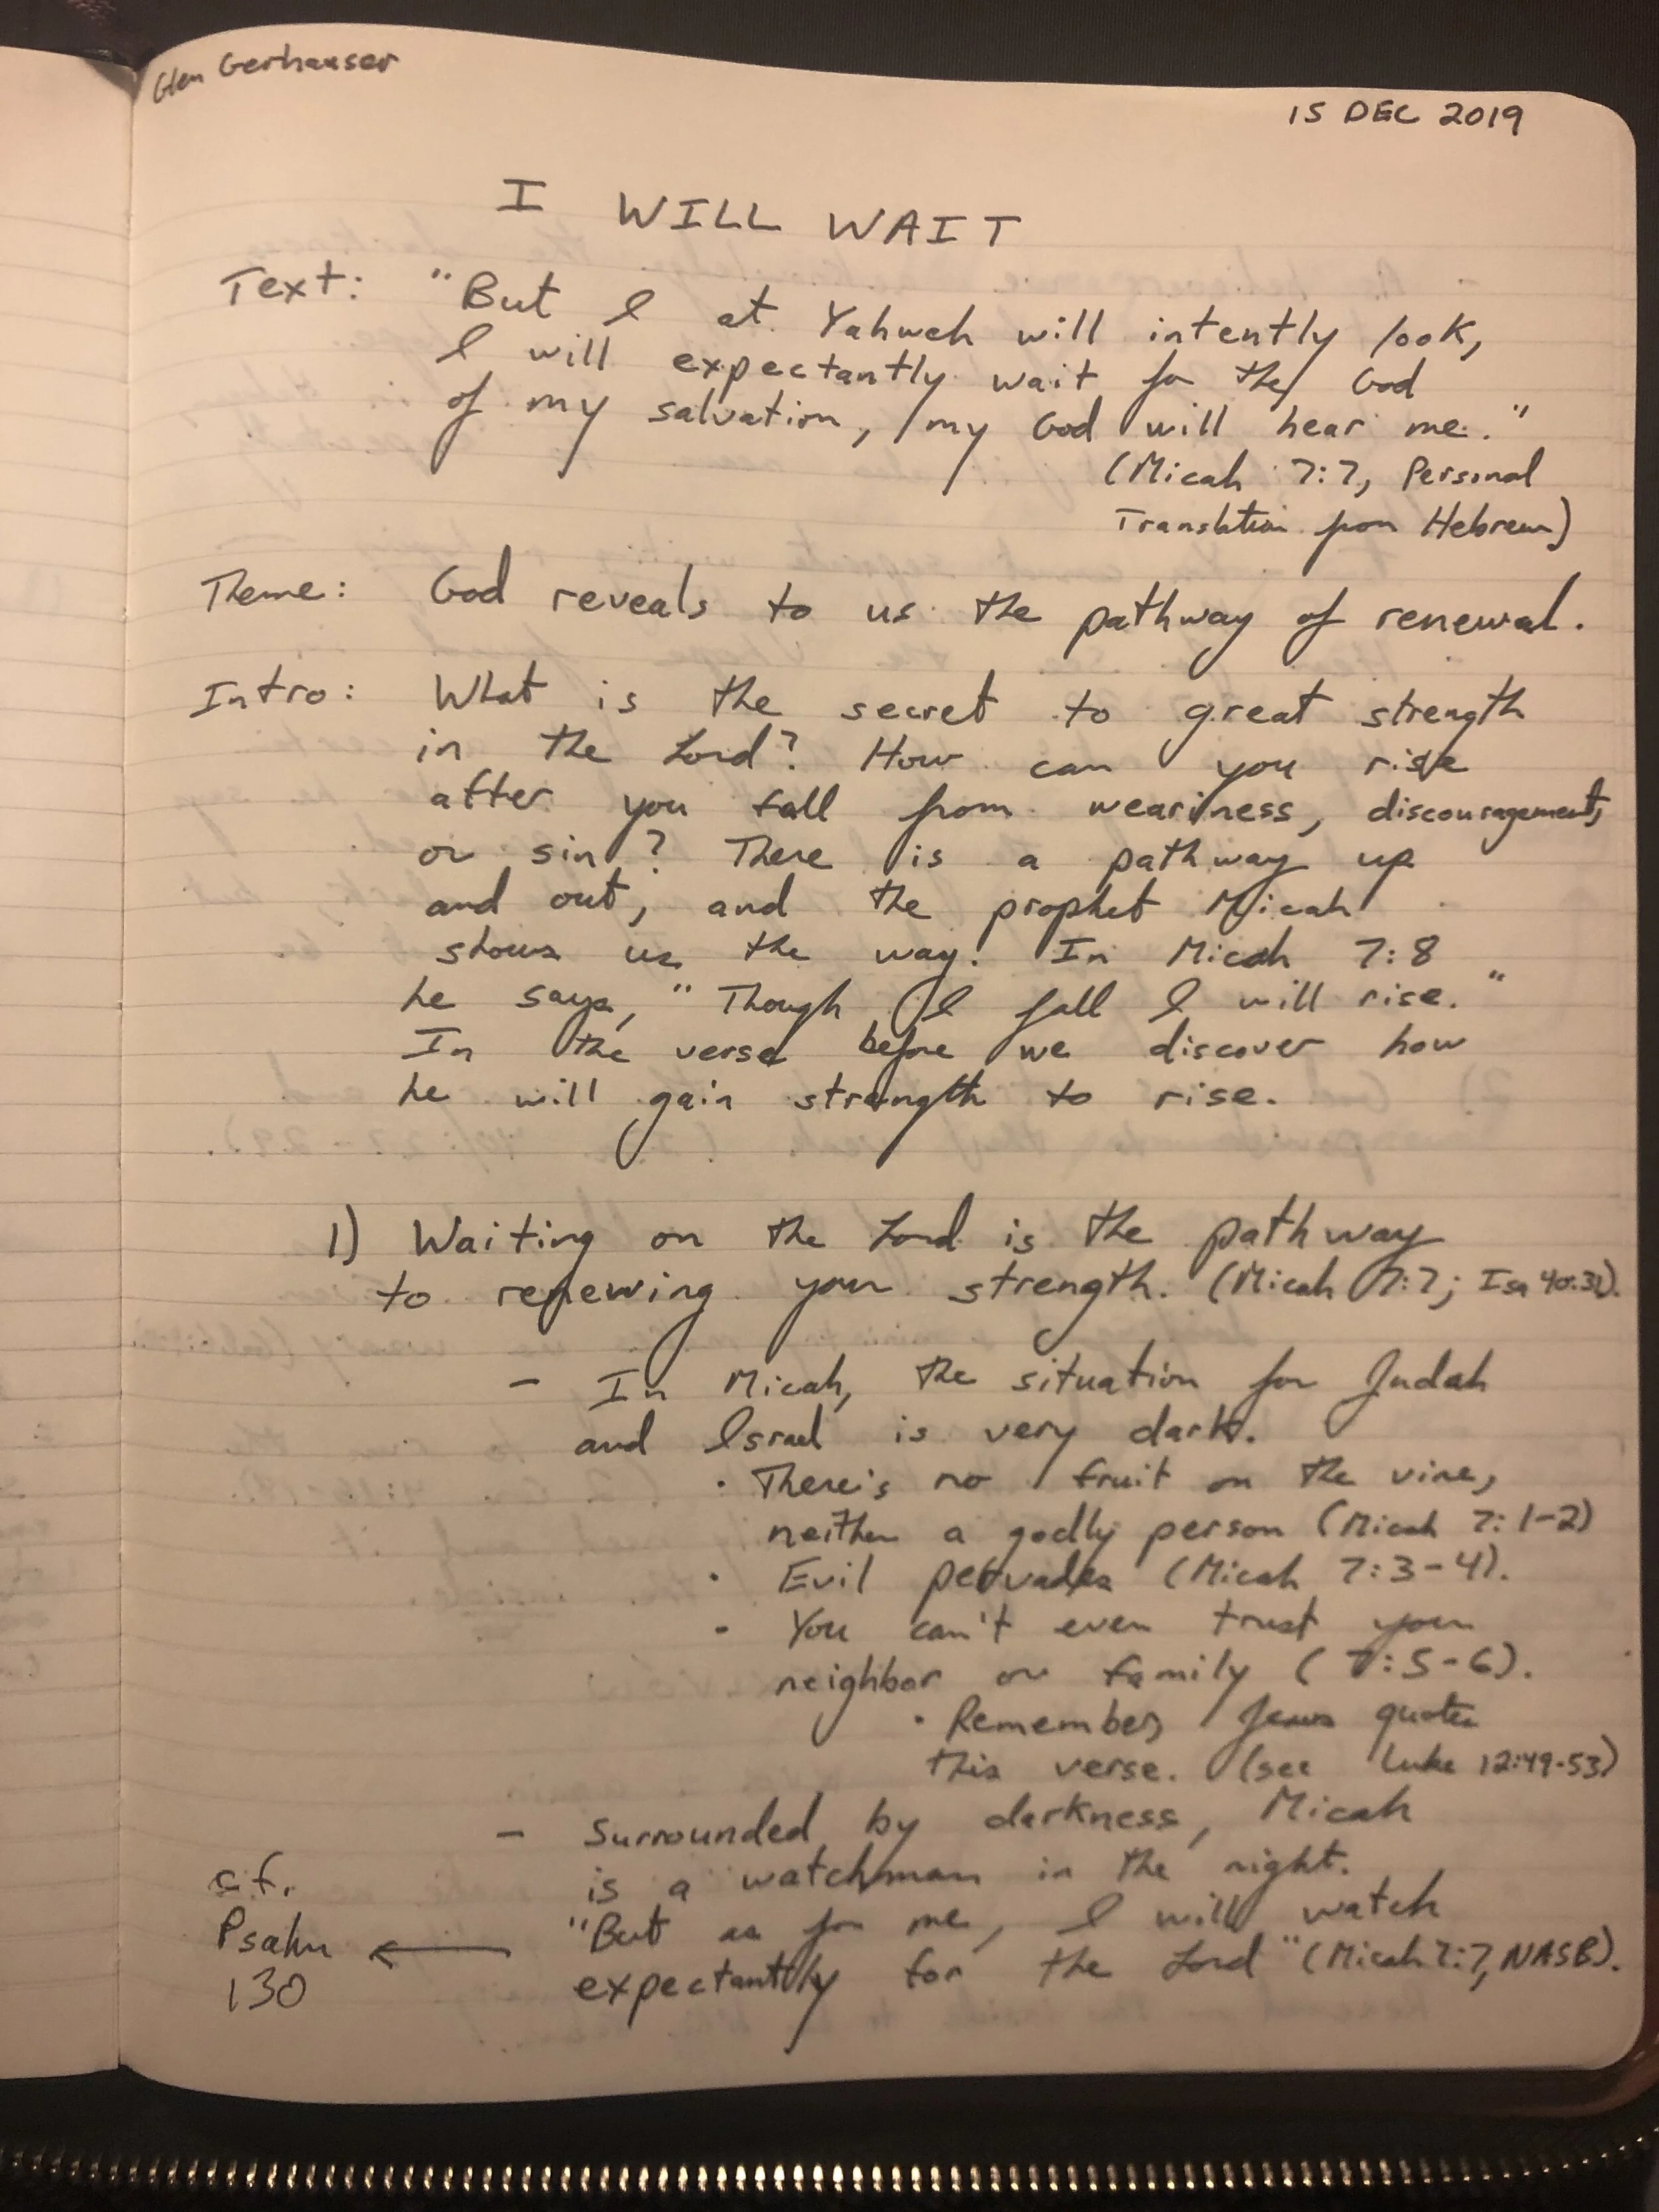 Glen Gerhauser
15 DEC 2019
I WILL WAIT
Text: "But I at Yahweh will intently look,
I will expectantly wait for the God
of my salvation, my God will hear me."
(Micah 7:7, Personal
Translation from Hebrew)
Theme: God reveals to us the pathway of renewal.
Intro: What is the secret to great strength
in the Lord? How can you rise
after you fall from weariness, discouragement,
or sin? There is a pathway up
and out, and the prophet Micah
shows us the way! In Micah 7:8
he says, "Though I fall I will rise."
In the verse before we discover how
he will gain strength to rise.
1) Waiting on the Lord is the pathway
to renewing your strength. (Micah 7:7; Isa 40:31).
- In Micah, the situation for Judah
and Israel is very dark.
· There's no fruit on the vine,
neither a godly person (Micah 7:1-2)
· Evil pervades (Micah 7:3-4).
· You can't even trust your
neighbor or family (7:5-6).
· Remember, Jesus quotes
this verse. (see Luke 12:49-53)
- Surrounded by darkness, Micah
is a watchman in the night.
"But as for me, I will watch
expectantly for the Lord" (Micah 7:7, NASB).
c.f.
Psalm ←
130